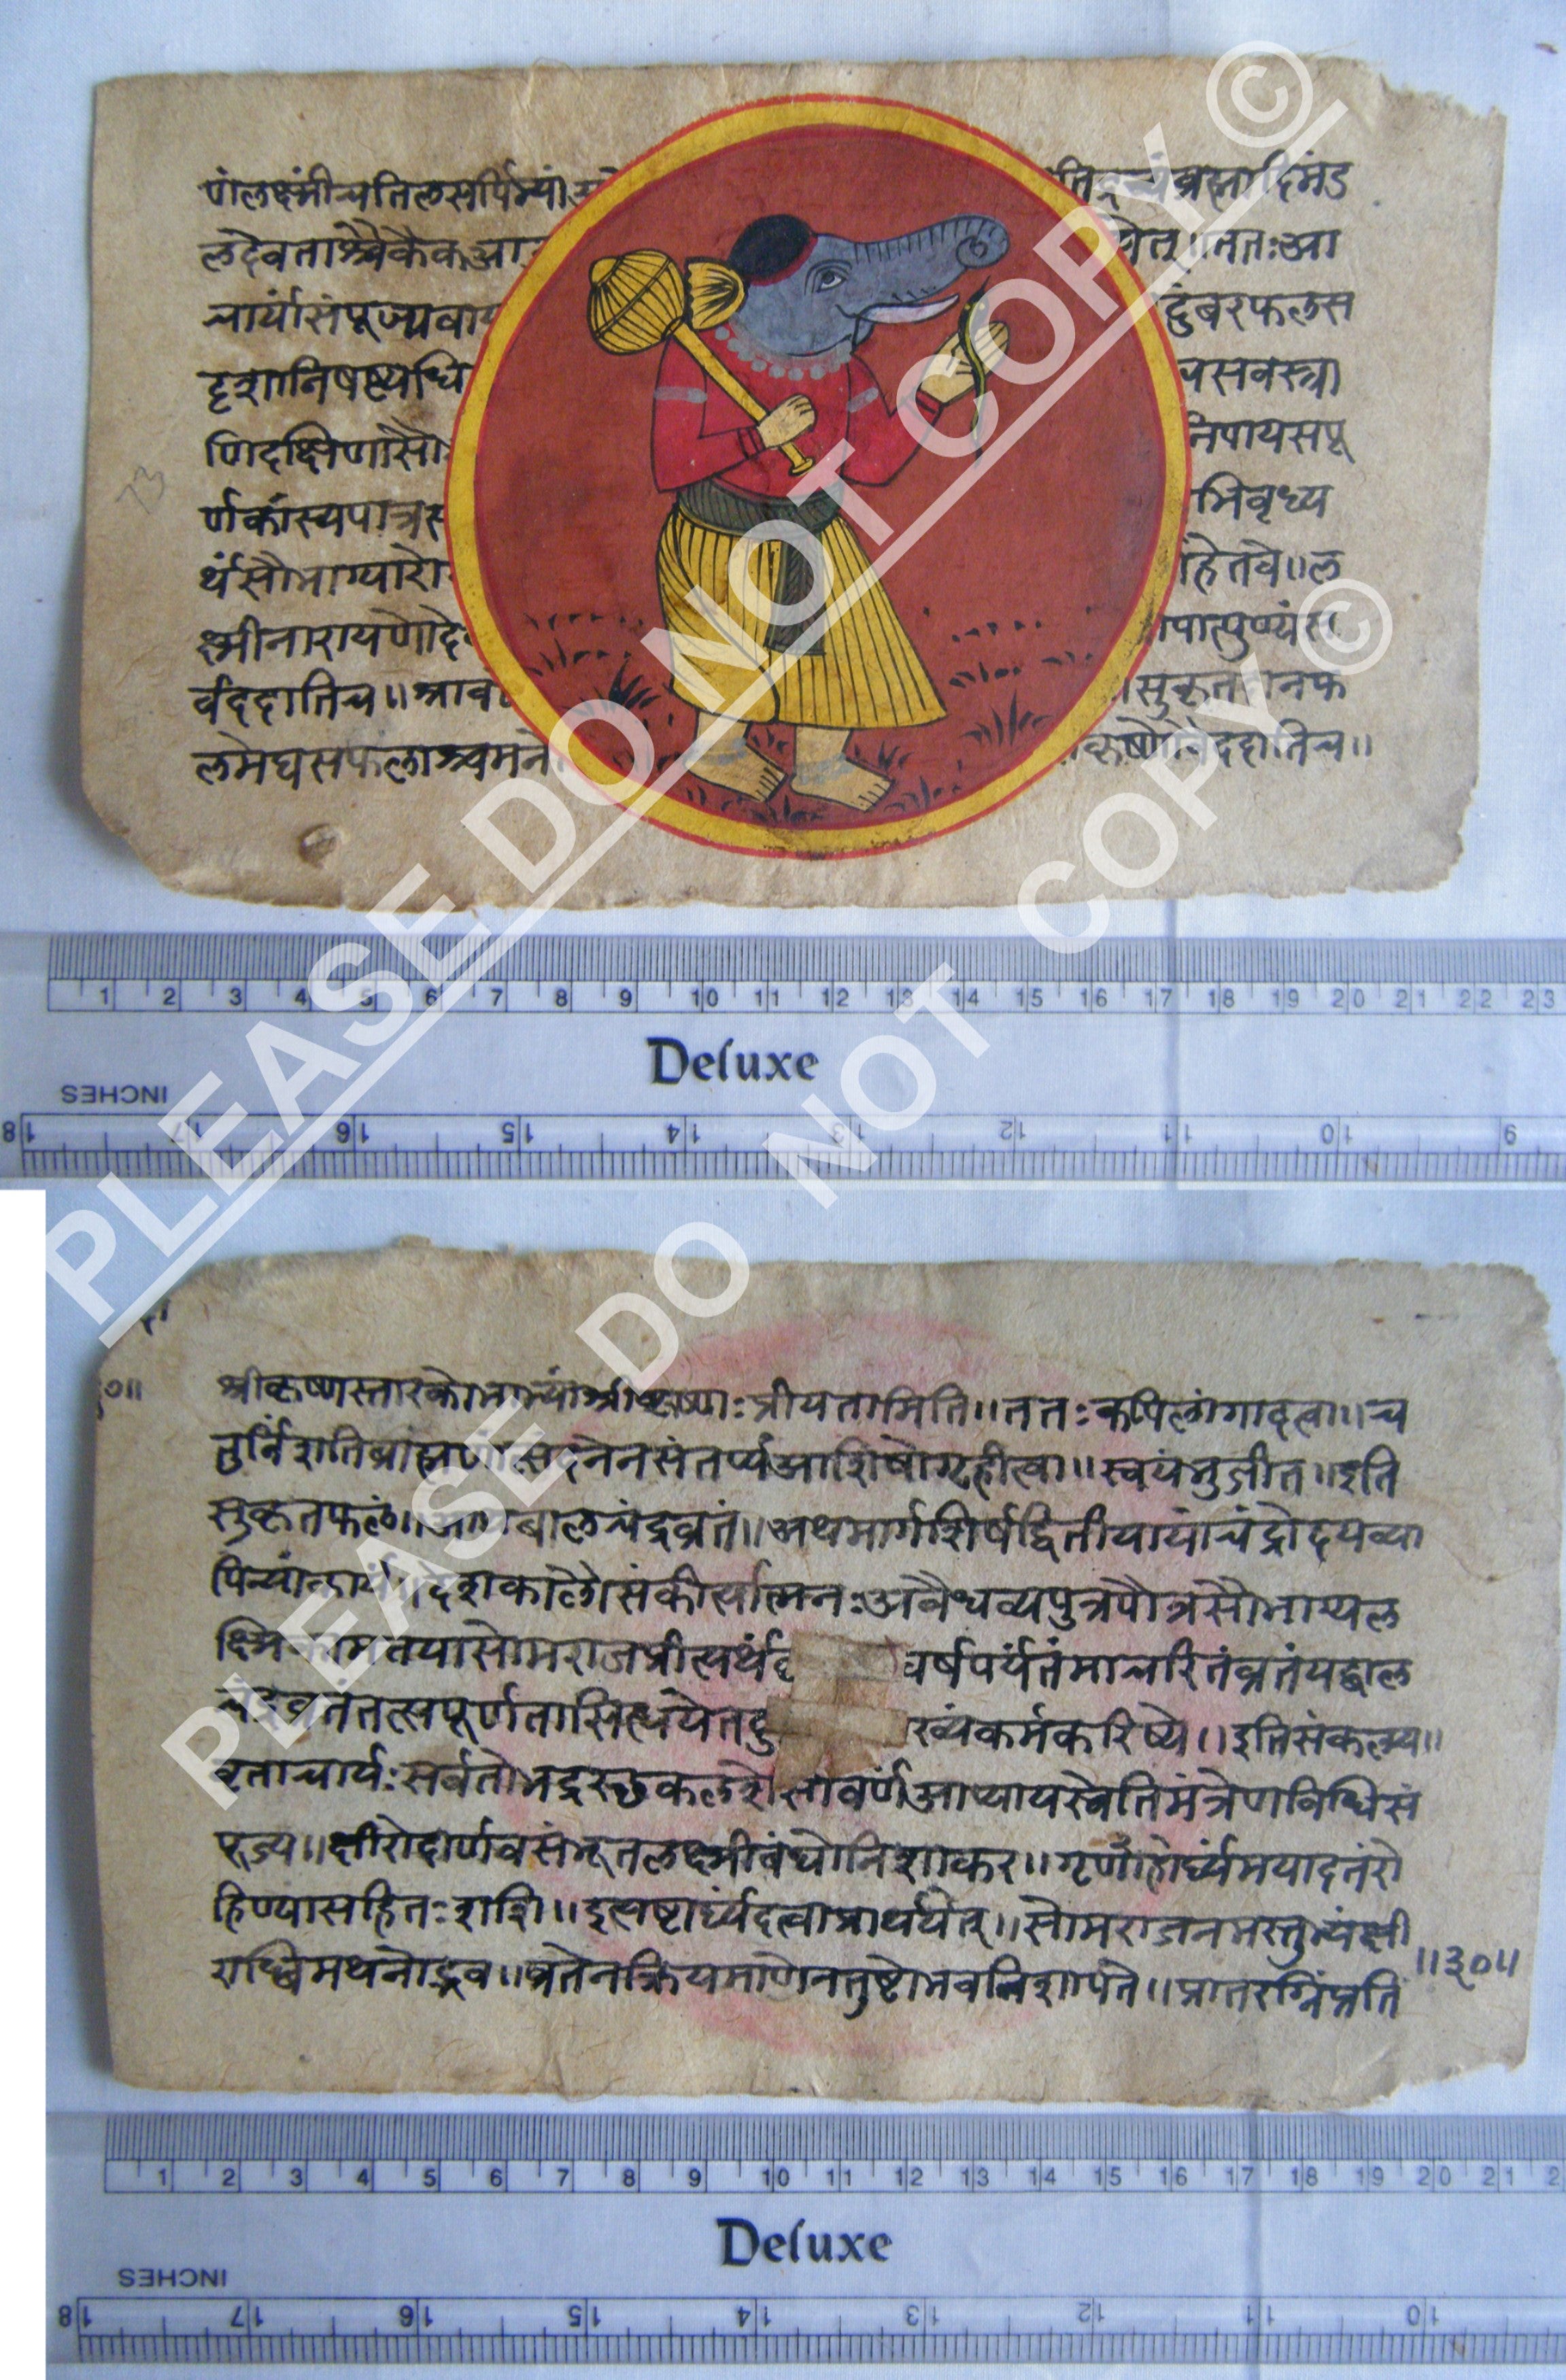 र्णंलक्ष्मींचतिलसर्पिभ्यां ब्रह्मादिमंड
लदेवताश्चैकैकआ येत्॥ततःआ
चार्यासंपूज्यवा दुंबरफलस
दृशानिषष्ट्यधि चसवस्त्रा
णिदक्षिणासौ निपायसपू
र्णकांस्यपात्रस भिवृध्य
र्थंसौभाग्यारो हेतवे॥ल
क्ष्मीनारायणोदे पात्पुण्यंस
र्वंददातिच॥श्राव सुकृत नफ
लमेघसफलाश्चमन कृष्णो ददातिच॥
1 2 3 4 5 6 7 8 9 10 11 12 13 14 15 16 17 18 19 20 21 22 23
Deluxe
INCHES
18 17 16 15 14 13 12 11 10 9
श्रीकृष्णस्तारको श्रीकृष्णः प्रीयतामिति॥ततःकपिलांगांदत्वा॥च
तुर्विंशतिब्रांह्मणां नसंतर्प्यआशिषोगृहीत्वा॥स्वयंभुंजीत॥इति
सुकृतफलं॥अथबालचंद्रव्रतं॥अथमार्गशिर्षद्वितीयायांचंद्रोदयव्या
पिन्यांकार्यं॥देशकालौसंकीर्त्यात्मनःअवैधव्यपुत्रपौत्रसौभाग्यल
क्ष्मिकामतयासोमराजप्रीत्यर्थं वर्षपर्यंतंमाचरितंव्रतंयद्बाल
चंद्रव्रतंतत्संपूर्णतासिध्यर्थे ख्यंकर्मकरिष्ये॥इतिसंकल्प्य॥
वृताचार्यःसर्वतोभद्रस्छकलशेसौवर्णंआप्यायस्वेतिमंत्रेणविधिसं
पूज्य॥क्षीरोदार्णवसंभूतलक्ष्मीबंधोनिशाकर॥गृणार्घ्यंमयादत्तंरो
हिण्यासहितःशशि॥इत्यष्टार्घ्यंदत्वाप्रार्थयेत्॥सोमराजनमस्तुभ्यंक्षी
राब्धिमथनोद्भव॥व्रतेनक्रियमाणेनतुष्टोभवनिशापते॥प्रातरग्निंप्रति
॥३०॥
1 2 3 4 5 6 7 8 9 10 11 12 13 14 15 16 17 18 19 20 21
Deluxe
INCHES
18 17 16 15 14 13 12 11 10
PLEASE DO NOT COPY ©
PLEASE DO NOT COPY ©